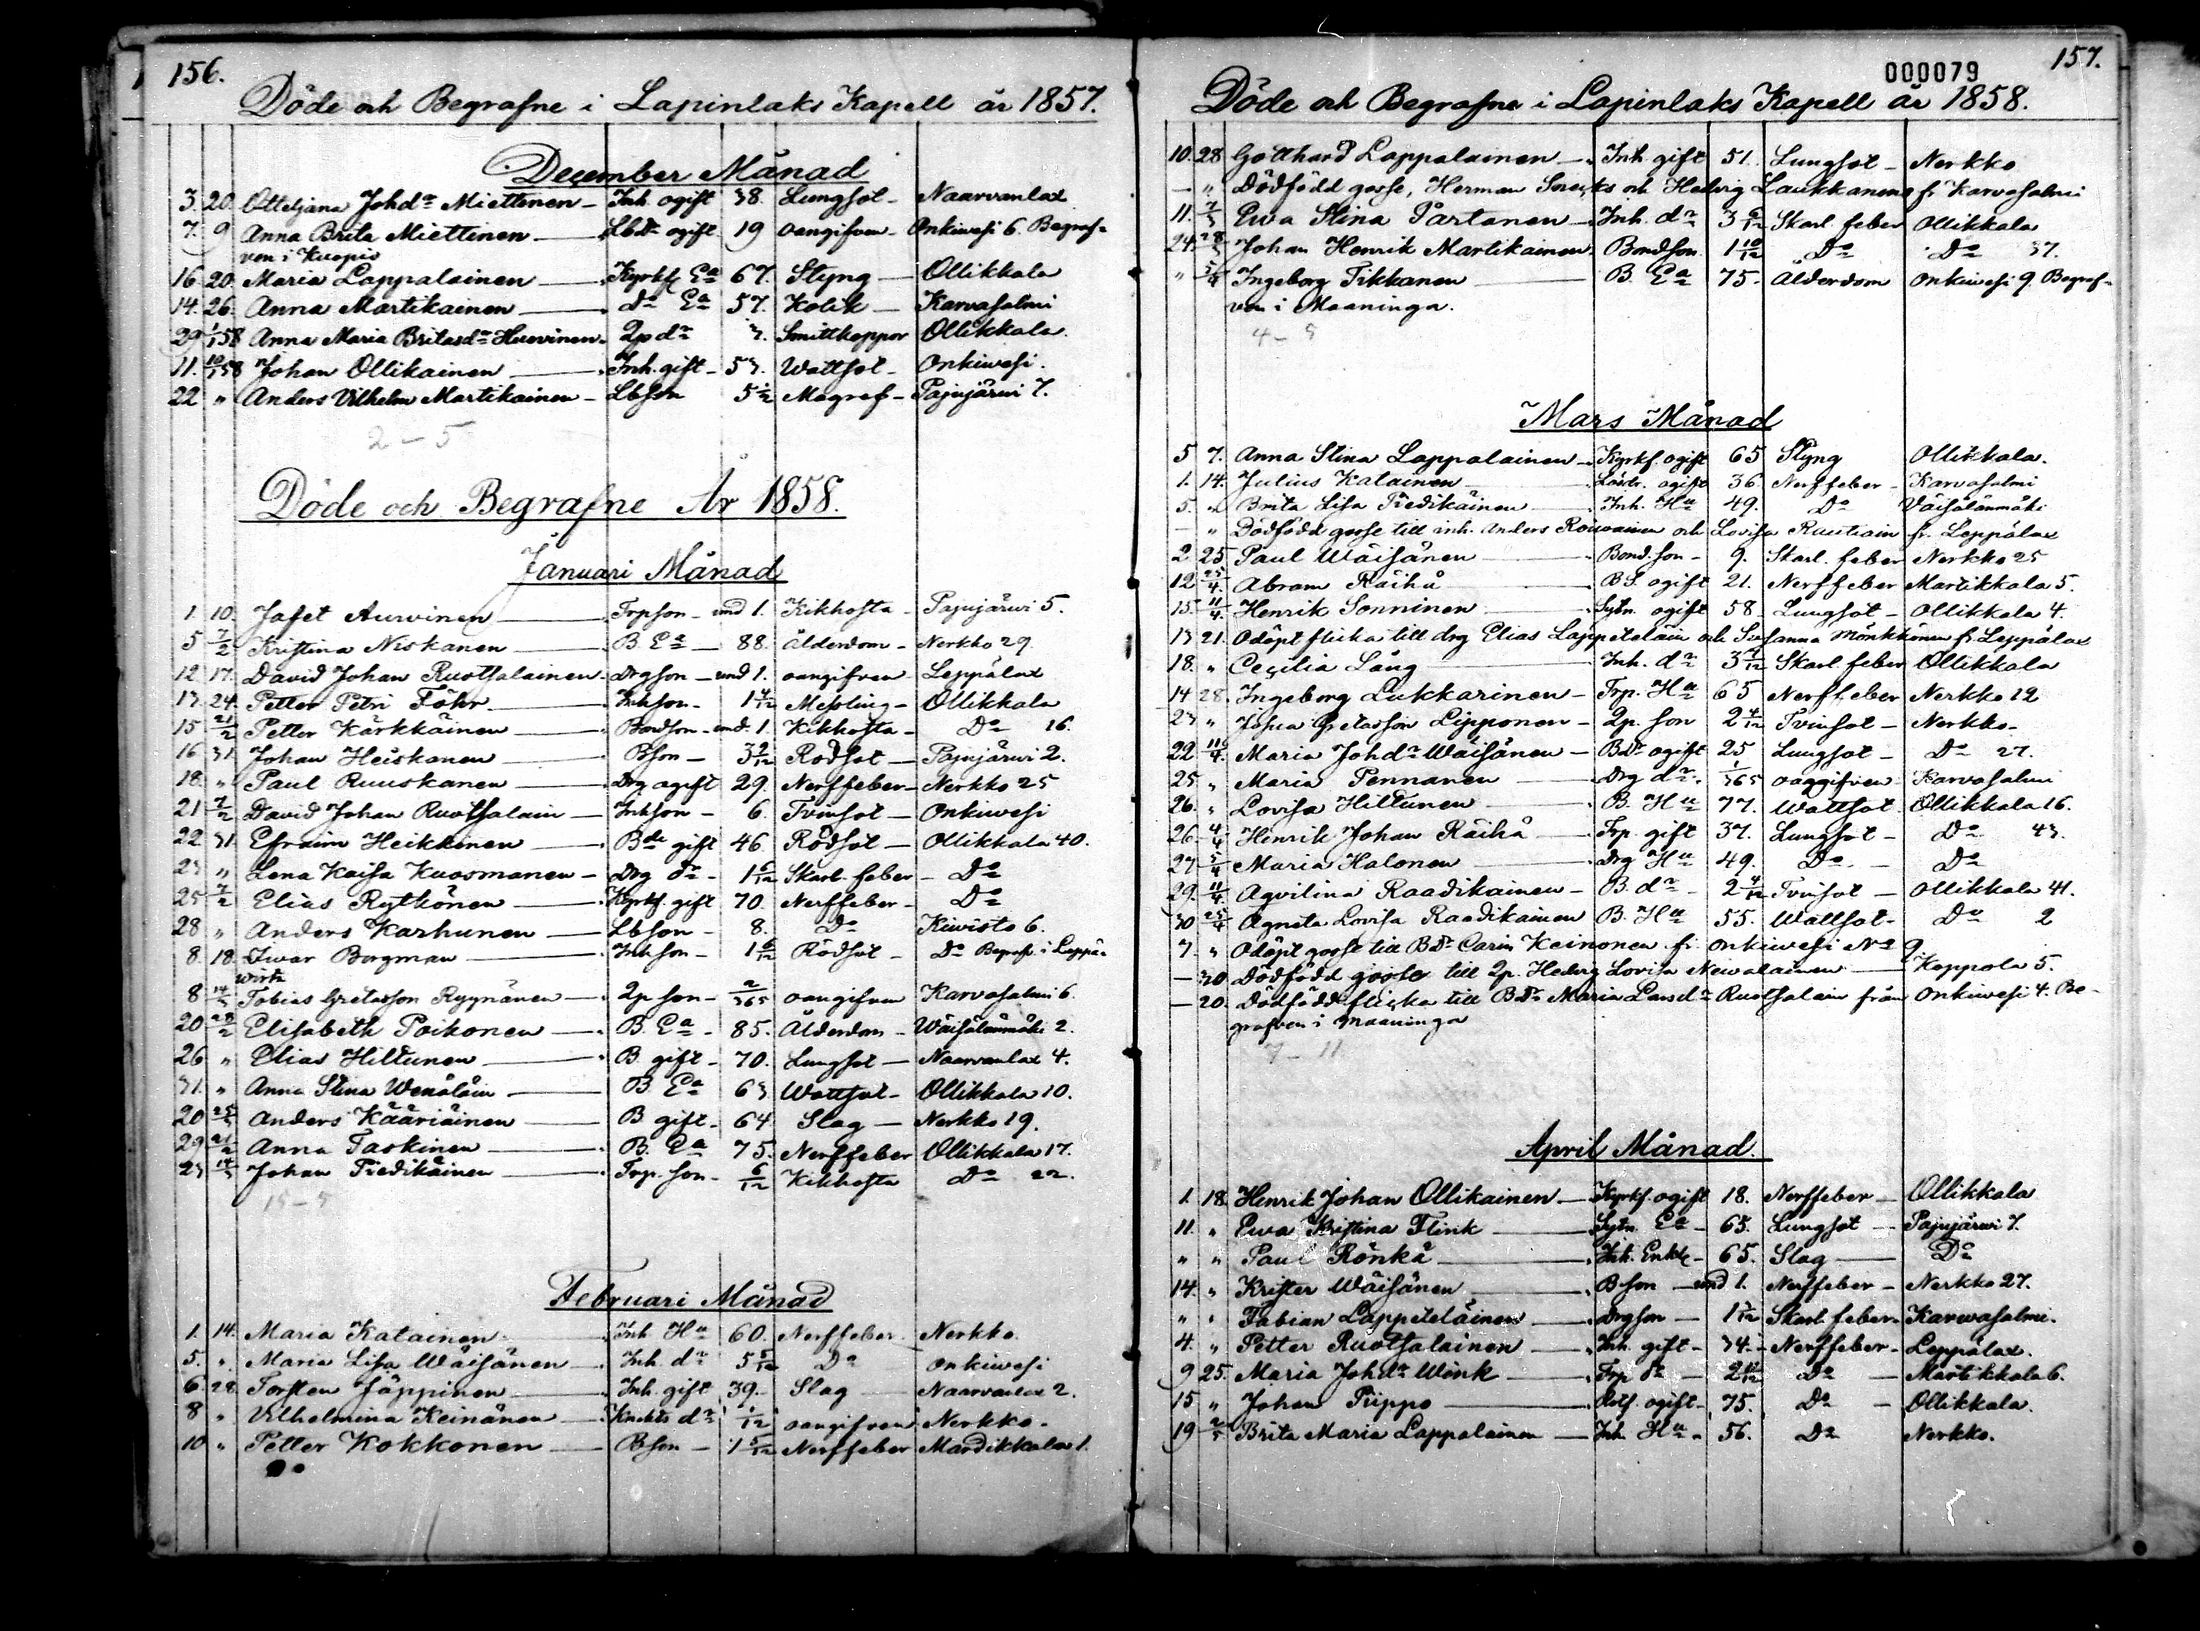 156.
Döde och Begrafne i Lapinlaks Kapell år 1857.
December Månad
3. 20. Otteljana Johdr Miettinen - Inh. ogift 38. Lungsot - Naarvanlax
7. 9 Anna Brita Miettinen - Lbdr ogift 19 oangifven - Onkiwesi 6. Begraf-
ven i Kuopio
16. 20. Maria Lappalainen - Kyrkf. Ea 67. Styng - Ollikkala
14. 26. Anna Martikainen - do Ea 57. Kolik - Karvasalmi
29 1/1 58 Anna Maria Britasdr Huovinen - 2p dr 3. Smittkoppor Ollikkala.
11. 10/1 58 Johan Ollikainen - Inh. gift - 53. Wattsot - Onkiwesi.
22 " Anders Vilhelm Martikainen - Lbson 5 1/2 Magref - Pajujärwi 7.
2 - 5
Döde och Begrafne År 1858.
Januari Månad
1. 10. Jafet Auvinen - Trpson - und 1. Kikhosta - Pajujärwi 5.
5 7/2 Kristina Niskanen - B Ea - 88. Ålderdom - Nerkko 29.
12 17. David Johan Ruotsalainen - Drgson - und 1. oangifven Leppälax
13. 24. Petter Petri Föhr - Inhson - 1 4/12 Messling - Ollikkala
15 21/2 Petter Kärkkäinen - Bondson - und. 1. Kikhosta - Do 16.
16 31 Johan Heiskanen - Bson - 3 2/12 Rödsot - Pajujärwi 2.
18. " Paul Ruuskanen - Drg ogift 29. Nerffeber - Nerkko 25
21 7/2 David Johan Ruotsalain - Inhson - 6. Tvinsot - Onkiwesi
22 31. Efraim Heikkinen - Bde gift 46. Rödsot - Ollikkala 40.
23 " Lena Kaisa Kuosmanen - Drg dr - 1 6/12 Skarl. feber - Do
25 7/2 Elias Rytkönen - Kyrkf. gift 70. Nerffeber - Do
28 " Anders Karhunen - Lbson - 8. Do Kiwisto 6.
8. 18. Iwar Borgman - Inhson - 1 6/12 Rödsot - Do Begraf. i Leppä-
wirta
8 14/3 Tobias Gretasson Ryynänen - 2p son - 2/365 oangifven Karvasalmi 6.
20 28/2 Elisabeth Poikonen - B. Ea - 85. Ålderdom - Wäisälänmäki 2.
26 " Elias Hiltunen - B gift - 70. Lungsot - Naarvanlax 4.
31. " Anna Stina Wenäläin - B Ea 63 Wattsot - Ollikkala 10.
20 25/3 Anders Kääriäinen - B gift - 64 Slag - Nerkko 19.
29 21/2 Anna Taskinen - B. Ea 75. Nerffeber Ollikkala 17.
23 14/3 Johan Tiedikäinen - Trp. son - 6/12 Kikhosta Do 22.
15 - 5
Februari Månad
1. 14. Maria Katainen - Inh Hu 60. Nerffeber Nerkko.
5. " Maria Lisa Wäisänen - Inh. dr 5 5/12 Do Onkiwesi
6. 28. Torsten Jäppinen - Inh. gift 39. Slag Naarvanlax 2.
8 " Vilhelmina Keinänen - Knekts dr 1/12 oangifven Nerkko.
10 " Petter Kokkonen - Bson - 1 5/12 Nerffeber Mardikkala 1.
000079
157.
Döde och Begrafne i Lapinlaks Kapell år 1858.
10. 28 Gotthard Lappalainen - Inh. gift 51. Lungsot - Nerkko
- " Dödfödd gosse, Herman och Hedvig Laukkanens fr. Karvasalmi
11. 7/3 Ewa Stina Partanen - Inh. dr 3 6/12 Skarl. feber Ollikkala
24. 28/3 Johan Henrik Martikainen - Bondson 1 10/12 Do Do 37.
" 5/4 Ingeborg Tikkanen - B. Ea 75. Ålderdom Onkiwesi 9. Begraf-
ven i Maaninga.
4 - 5
Mars Månad
5 7. Anna Stina Lappalainen - Kyrkf. ogift 65 Styng Ollikkala.
1. 14. Julius Katainen ogift 36. Nerffeber - Karvasalmi
5. " Brita Lisa Tiedikäinen Inh. Hu 49. Do Väisälänmäki
- " Dödfödd gosse till inh. Anders och Lovisa Rautiain fr. Leppälax
2 25 Paul Wäisänen Bond. son - 9. Skarl. feber Nerkko 25
12 25/4 Abram Räihä BS. ogift 21. Nerffeber Martikkala 5.
15. 11/4 Henrik Sonninen Sytn. ogift 58 Lungsot - Ollikkala 4.
13 21. Odöpt flicka till drg Elias Lappeteläin och Susanna Mönkkönen fr. Leppälax
18. " Cecilia Lång Inh. dr 3 Skarl. feber Ollikkala
14 28. Ingeborg Lukkarinen - Trp. Hu 65 Nerffeber Nerkko 12
23 " Gretasson Lipponen - 2p. son 2 4/12 Tvinsot - Nerkko -
22 11/4 Maria Johdr Wäisänen - Bdr ogift 25 Lungsot - Do 27.
25 " Maria Pennanen Drg dr. 1/365 oaggifven Karvasalmi
26. " Lovisa Hiltunen B. Hu 77. Wattsot Ollikkala 16.
26. 4/4 Henrik Johan Räihä Trp. gift 37. Lungsot - Do 43.
27 5/4 Maria Halonen Drg Hu 49. Do Do
29. 11/4 Agvilina Raadikainen - B. dr - 2 4/12 Tvinsot - Ollikkala 41.
30 25/4 Agneta Lovisa Raadikainen B. Hu 55. Wattsot - Do 2
7. " Odöpt gosse till Bdr Carin Keinonen fr. Onkiwesi No 9
- 30 Dödfödd gosse till 2p. Hedvig Lovisa Newalainen - Keppola 5.
- 20. Dödfödd flicka till Bdr Maria Larsdr Ruotsalain från Onkiwesi 4. Be-
grafven i Maaninga
7 - 11
April Månad.
1. 18. Henrik Johan Ollikainen - Kyrkf. ogift 18. Nerffeber - Ollikkala
11. " Ewa Kristina Flink Sytn. Ea - 65. Lungsot - Pajujärwi 7.
" " Paul Rönkä Inh. Enkl. - 65. Slag Do
14. " Krister Wäisänen Bson - und 1. Nerffeber - Nerkko 27.
" " Fabian Lappeteläinen Drgson - 1 Skarl. feber Karwasalmi.
4. " Petter Ruotsalainen Inh. gift - 34. - Nerffeber - Leppälax.
9 25. Maria Johdr Wink Trp dr - 2 Do Martikkala 6.
15 " Johan Piippo ogift - 75. Do - Ollikkala.
19 2/5 Brita Maria Lappalainen - Inh Hu - 56. Do Nerkko.